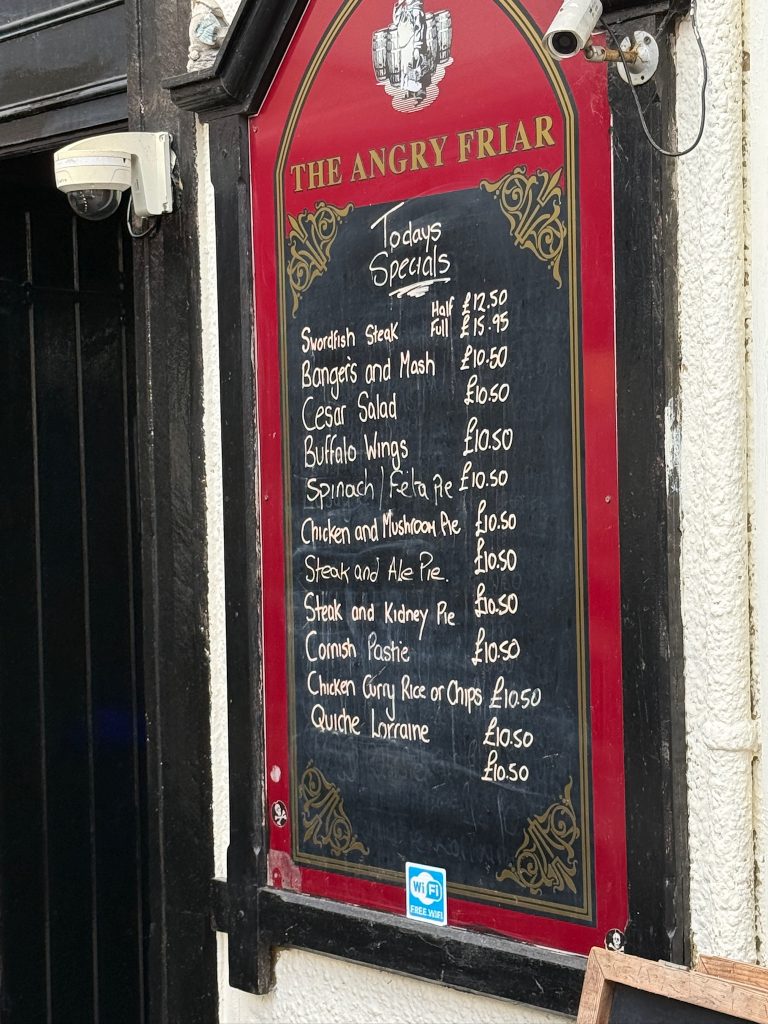 THE ANGRY FRIAR
Todays
Specials
Half £12.50
Swordfish Steak Full £15.95
Banger's and Mash £10.50
Cesar Salad £10.50
Buffalo Wings £10.50
Spinach/Feta Pie £10.50
Chicken and Mushroom Pie £10.50
Steak and Ale Pie. £10.50
Steak and Kidney Pie £10.50
Cornish Pastie £10.50
Chicken Curry Rice or Chips £10.50
Quiche Lorraine £10.50
£10.50
WiFi
FREE WIFI